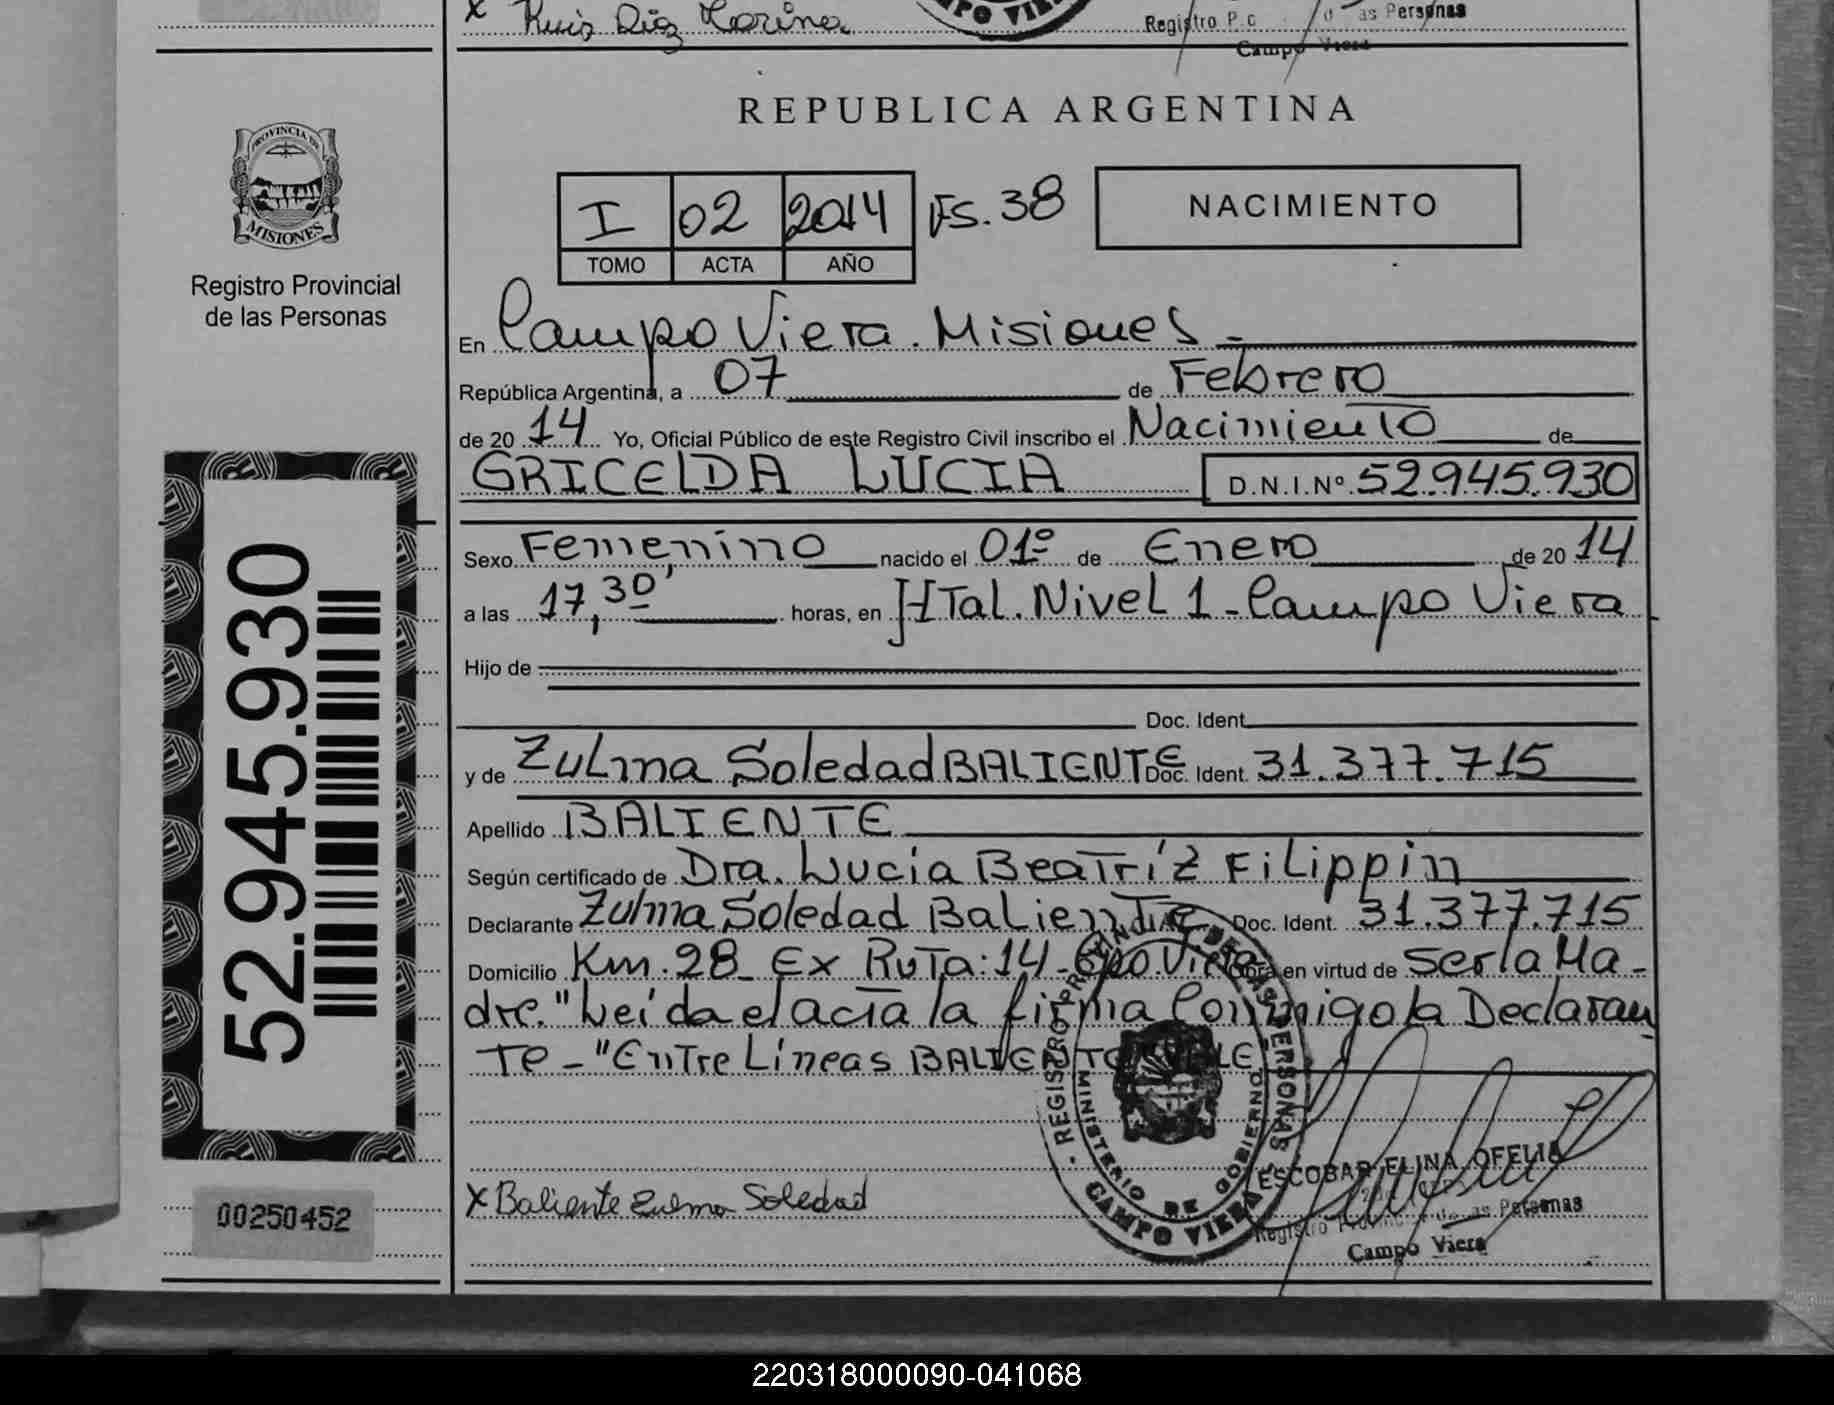 X Ruiz Diaz Karina
CAMPO VIERA
Registro P.c as Personas
Campo Viera
PROVINCIA DE
MISIONES
Registro Provincial
de las Personas
REPUBLICA ARGENTINA
I 02 2014 Fs. 38 NACIMIENTO
TOMO ACTA AÑO
En Campo Viera. Misiones -
República Argentina, a 07 de Febrero
de 20 14 Yo, Oficial Público de este Registro Civil inscribo el Nacimiento de
GRICELDA LUCIA D.N.I.Nº 52.945.930
Sexo Femenino nacido el 01º de Enero de 20 14
a las 17,30' horas, en HTal. Nivel 1 - Campo Viera
Hijo de
Doc. Ident.
y de Zulma Soledad BALIENTE Doc. Ident. 31.377.715
Apellido BALIENTE
Según certificado de Dra. Lucia Beatríz Filippin
Declarante Zulma Soledad Baliente Doc. Ident. 31.377.715
Domicilio Km. 28 - Ex Ruta: 14 - Cpo. Viera Obra en virtud de Ser la Ma-
dre. "Leída el acta la firma Conmigo la Declaran
te - "Entre Líneas BALIENTE VALE"
X Baliente Zulma Soledad
- REGISTRO PROVINCIAL DE LAS PERSONAS -
MINISTERIO DE GOBIERNO
CAMPO VIERA
ESCOBAR ELINA OFELIA
Registro Provincial de las Personas
Campo Viera
52.945.930
00250452
220318000090-041068